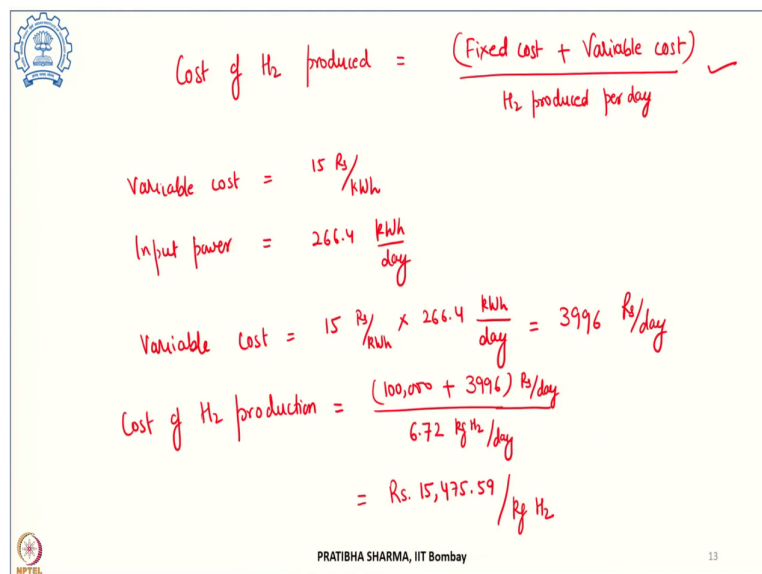 Cost of H2 produced = (Fixed cost + Variable cost) / H2 produced per day
Variable cost = 15 Rs/kWh
Input power = 266.4 kWh/day
Variable cost = 15 Rs/kWh × 266.4 kWh/day = 3996 Rs/day
Cost of H2 production = (100,000 + 3996) Rs/day / 6.72 kg H2/day
= Rs. 15,475.59/kg H2
NPTEL
PRATIBHA SHARMA, IIT Bombay
13